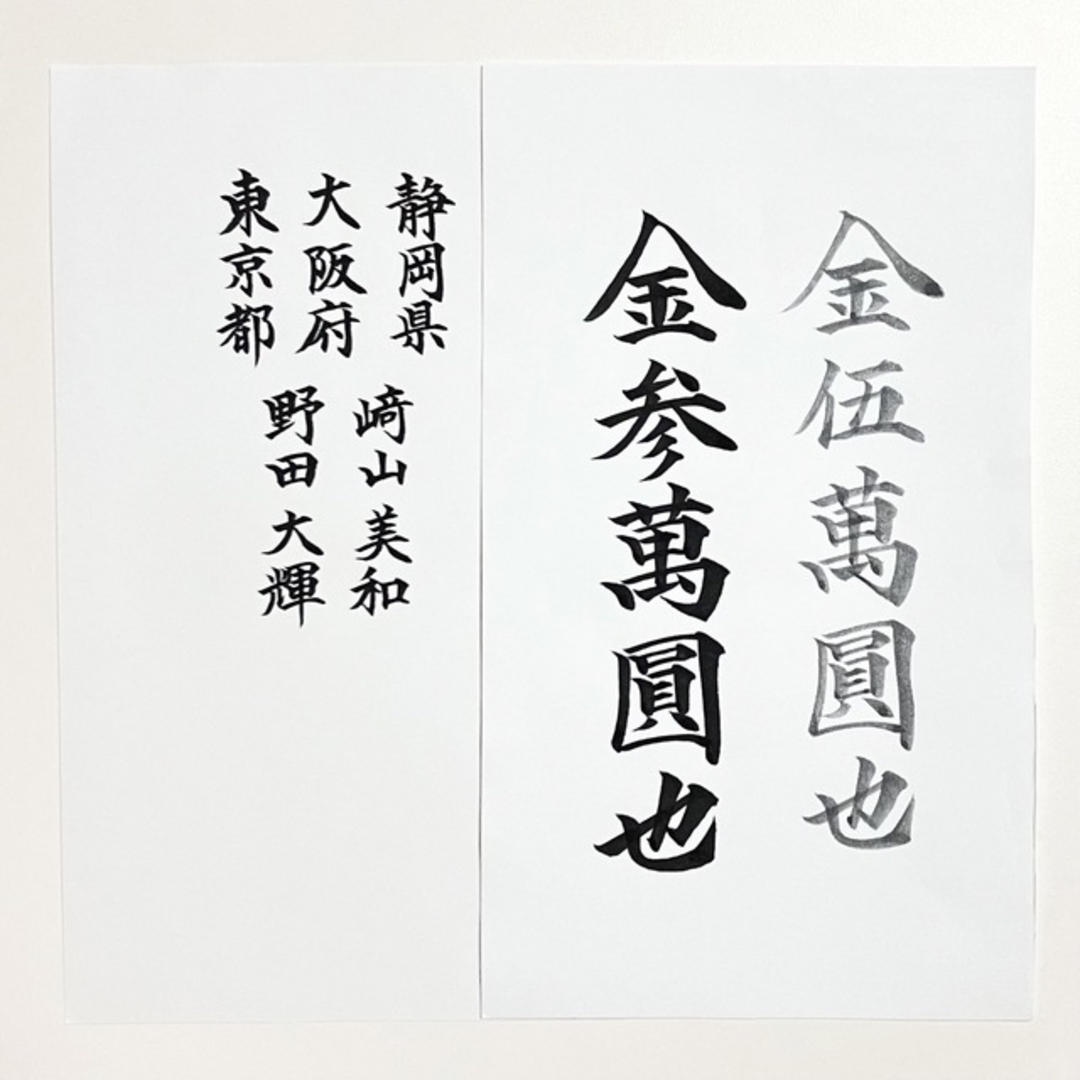 金伍萬圓也
金参萬圓也
静岡県
大阪府
東京都
﨑山美和
野田大輝